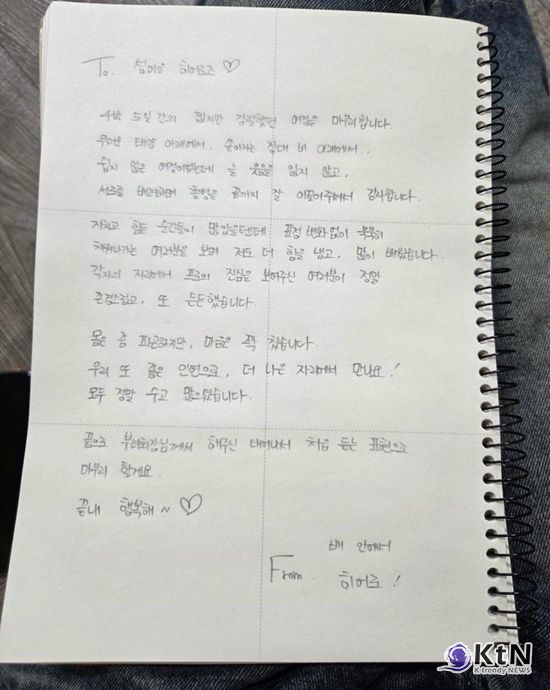 To. 섬마을 히어로즈 ♡
4박 5일간의 짧지만 강렬했던 여정을 마무리합니다.
무더운 태양 아래에서, 쏟아지는 장대 비 아래에서..
쉽지 않은 여정이었는데 늘 웃음을 잃지 않고,
서로를 배려하며 촬영을 끝까지 잘 이끌어주셔서 감사합니다.
지치고 힘든 순간들이 많았을텐데 표정 변화 없이 묵묵히
해나가는 여러분을 보며 저도 더 힘을 냈고, 많이 배웠습니다.
각자의 자리에서 프로의 진심을 보여주신 여러분이 정말
존경스럽고, 또 든든했습니다.
몸은 좀 피곤하지만, 마음은 꽉 찼습니다.
우리 또 좋은 인연으로, 더 나은 자리에서 만나요!
모두 정말 수고 많으셨습니다.
끝으로 부녀회장님께서 해주신 태어나서 처음 듣는 표현으로
마무리 할게요.
끝내 행복해~ ♡
배 안에서
From. 히어로!
KtN
K trendy NEWS